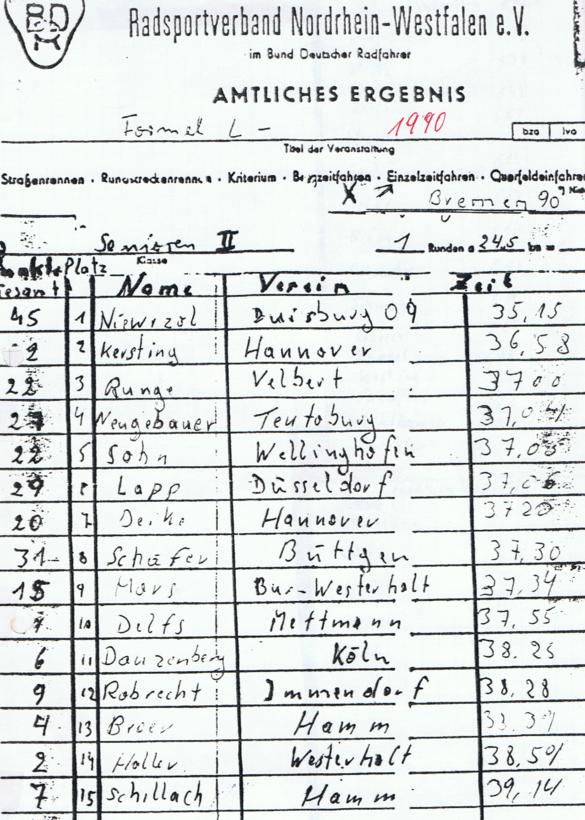 BDR
Radsportverband Nordrhein-Westfalen e.V.
im Bund Deutscher Radfahrer
AMTLICHES ERGEBNIS
Formel L - 1990
bza lva
Titel der Veranstaltung
Straßenrennen · Rundstreckenrennen · Kriterium · Bergzeitfahren · Einzelzeitfahren · Querfeldeinfahren
X Bremen 90
Senioren II 1 Runden a 24.5 km =
Klasse
Punkte Platz
Gesamt Name Verein Zeit
45 1 Niewrzol Duisburg 09 35,15
2 2 Kersting Hannover 36,58
22 3 Runge Velbert 3700
4 Neugebauer Teutoburg 37,04
22 5 Sohn Wellinghofen 37,05
29 Lapp Düsseldorf 37,06
20 7 Hannover 3720
31 8 Schäfer Büttgen 37,30
9 Mars Bur-Westerholt 37,34
10 Delfs Mettmann 37,55
6 11 Dauzenberg Köln 38.25
9 12 Robrecht Immendorf 38,28
4 13 Broer Hamm
2 14 Holler Westerholt 38,50
7 15 Schillach Hamm 39,14